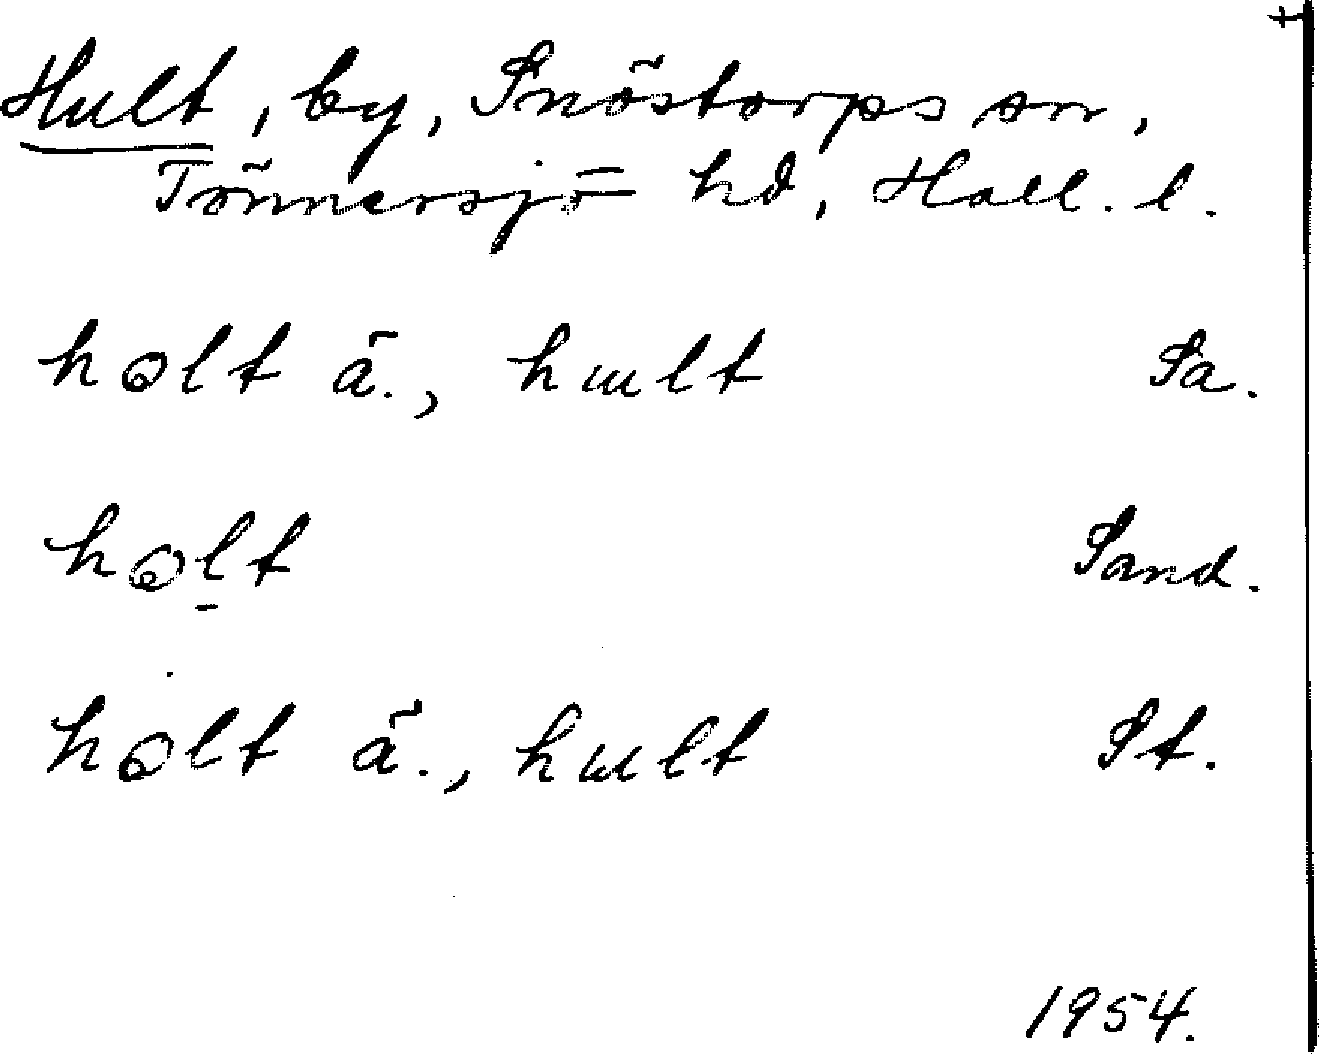 Hult, by, Snöstorps sn,
Tönnersjö hd, Hall. l.
hɷlt ä., hɯlt Sa.
hɷl̠t Sand.
hɷlt ä., hɯlt St.
1954.